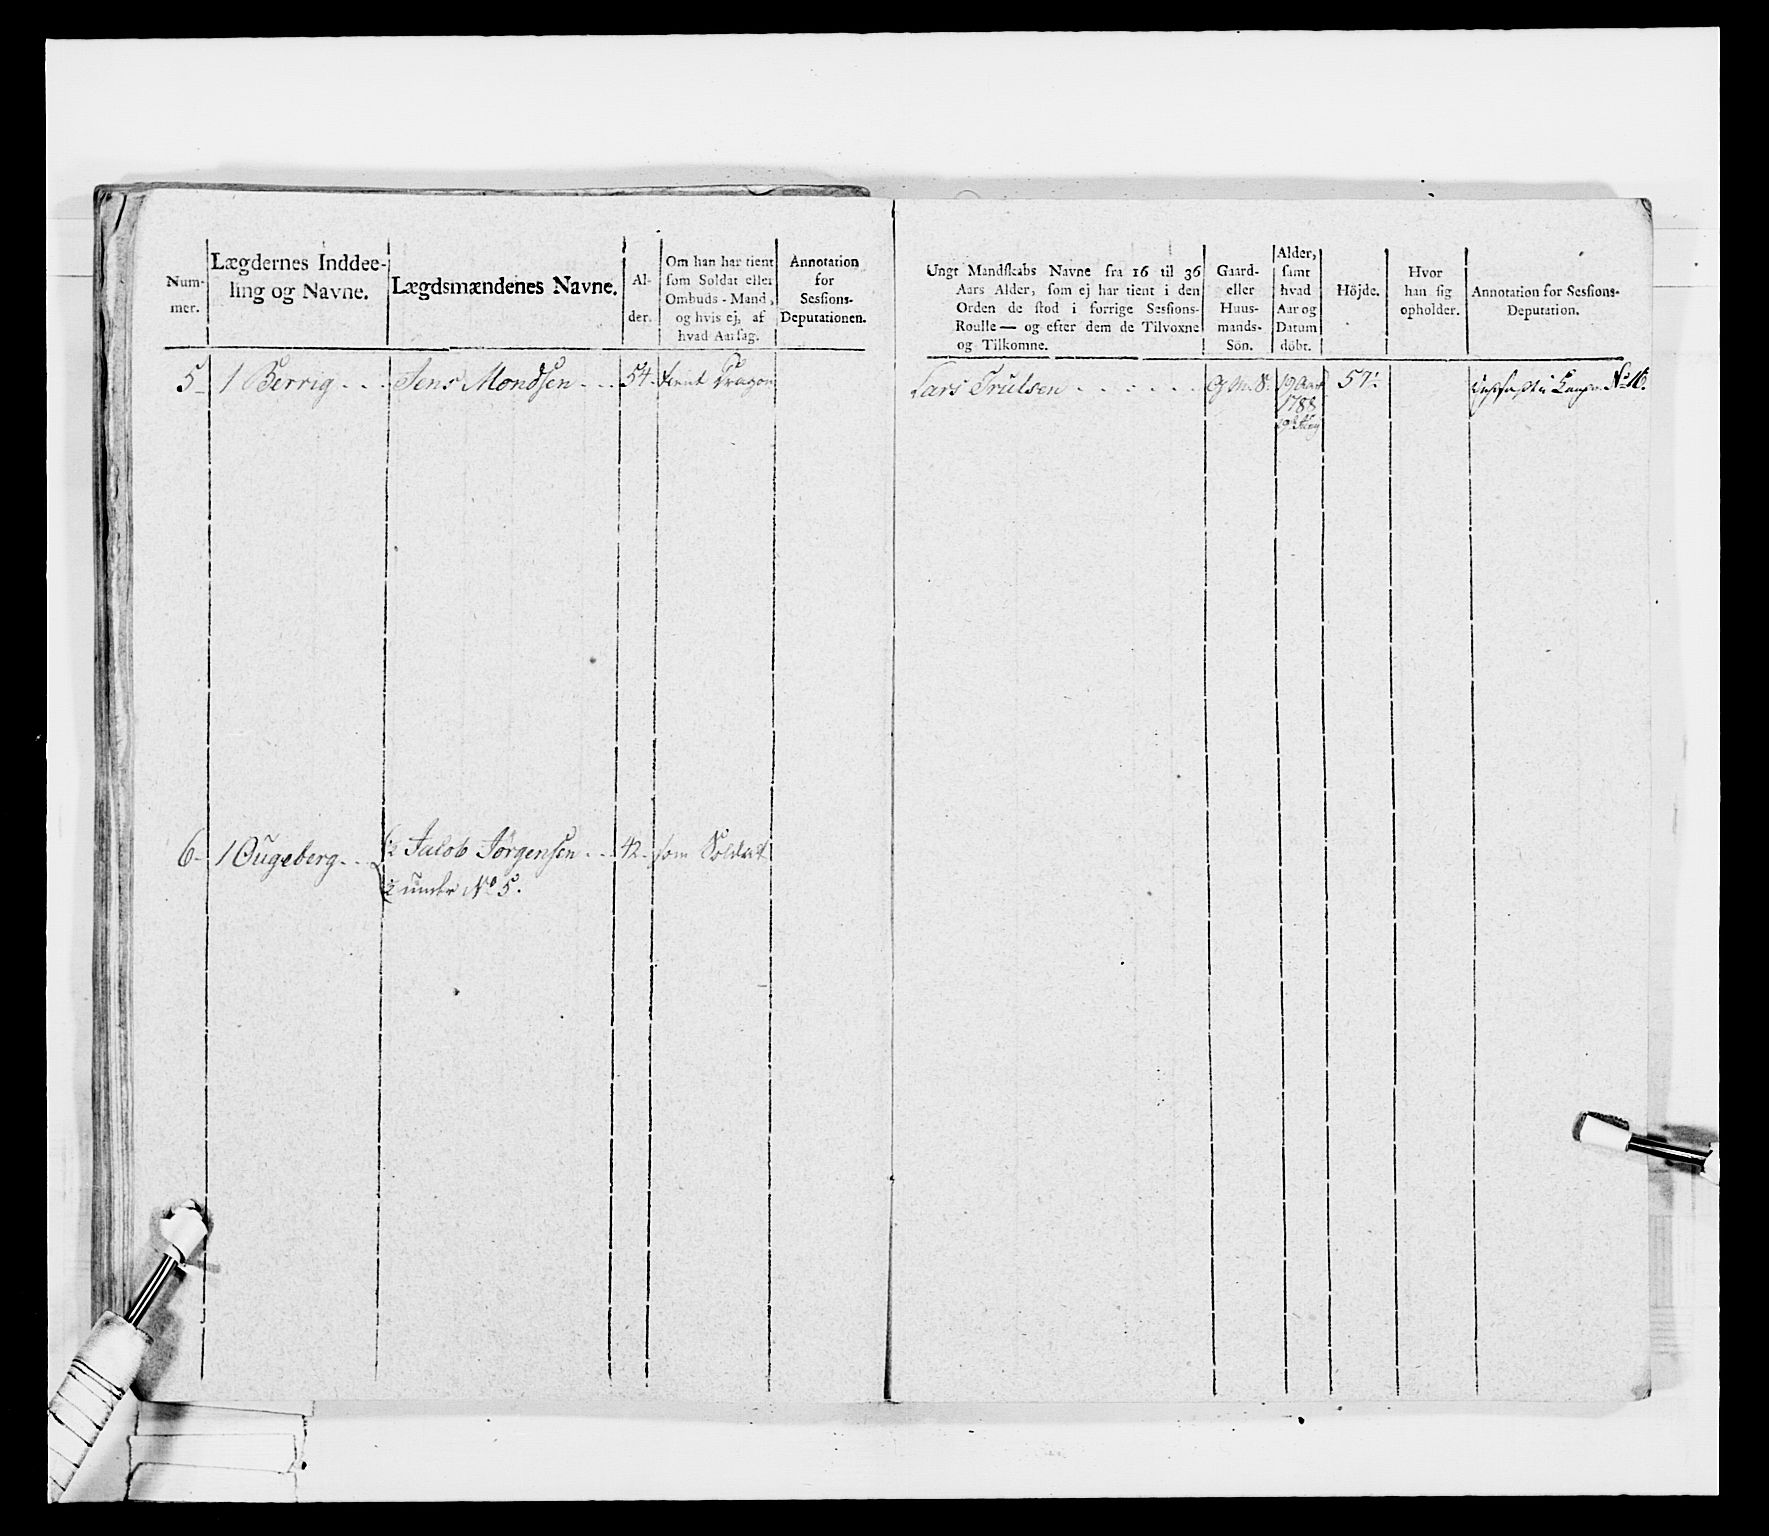 Num-
mer.
Lægdernes Inddee-
ling og Navne.
Lægdsmændenes Navne.
Al-
der.
Om han har tient
som Soldat eller
Ombuds-Mand,
og hvis ej, af
hvad Aarsag.
Annotation
for
Sessions-
Deputationen.
5 1 Berrig Jens Mondsen 54 tient Dragon
6 1 Ougeberg ½ Jacob Jørgensen 42 som Soldat
½ under No 5.
Ungt Mandskabs Navne fra 16 til 36
Aars Alder, som ej har tient i den
Orden de stod i forrige Sessions-
Roulle — og efter dem de Tilvoxne
og Tilkomne.
Gaard-
eller
Huus-
mands-
Sön.
Alder,
samt
hvad
Aar og
Datum
döbt.
Höjde.
Hvor
han sig
opholder.
Annotation for Sessions-
Deputation.
Lars Trulsen G.M.S. 19 Aar 57 No 16.
1788